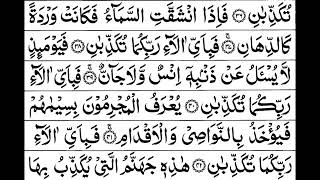 تُكَذِّبٰنِ ﴿۳۶﴾ فَاِذَا انْشَقَّتِ السَّمَآءُ فَكَانَتْ وَرْدَةً
كَالدِّهَانِ ﴿۳۷﴾ فَبِاَيِّ اٰلَآءِ رَبِّكُمَا تُكَذِّبٰنِ ﴿۳۸﴾ فَيَوْمَئِذٍ
لَّا يُسْـَٔلُ عَنْ ذَنْۢبِهٖۤ اِنْسٌ وَّلَا جَآنٌّ ﴿۳۹﴾ فَبِاَيِّ اٰلَآءِ
رَبِّكُمَا تُكَذِّبٰنِ ﴿۴۰﴾ يُعْرَفُ الْمُجْرِمُوْنَ بِسِيْمٰهُمْ
فَيُؤْخَذُ بِالنَّوَاصِيْ وَالْاَقْدَامِ ﴿۴۱﴾ فَبِاَيِّ اٰلَآءِ
رَبِّكُمَا تُكَذِّبٰنِ ﴿۴۲﴾ هٰذِهٖ جَهَنَّمُ الَّتِيْ يُكَذِّبُ بِهَا